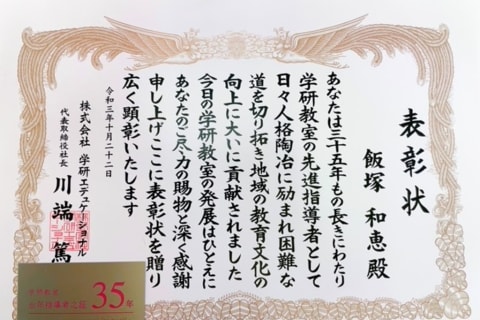 表彰状
飯塚 和恵 殿
あなたは三十五年もの長きにわたり
学研教室の先進指導者として
日々人格陶冶に励まれ困難な
道を切り拓き地域の教育文化の
向上に大いに貢献されました
今日の学研教室の発展はひとえに
あなたのご尽力の賜物と深く感謝
申し上げここに表彰状を贈り
広く顕彰いたします
令和三年十月二十二日
株式会社 学研エデュケーショナル
代表取締役社長 川端 篤
35年